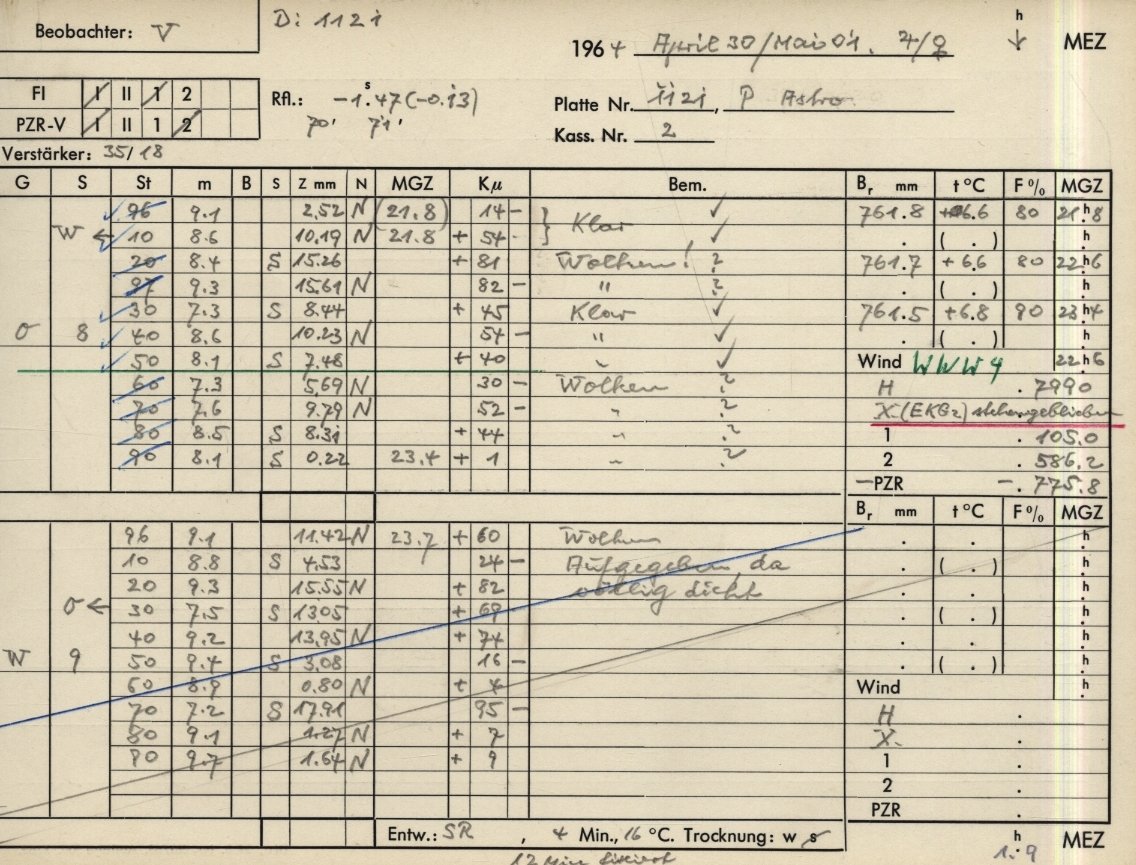 Beobachter: V
D: 1121
1964 April 30/Mai 01. 4/♀
h
MEZ
FI I II 1 2
PZR-V I II 1 2
Rfl.: -1.ˢ47 (-0.13)
70' 71'
Platte Nr. 1121, P Astro
Kass. Nr. 2
Verstärker: 35/18
G S St m B S Z mm N MGZ Kμ Bem. Br mm t °C F % MGZ
96 9.1 2.52 N (21.8) 14 - ✓ 761.8 +6.6 80 21ʰ8
W ← 10 8.6 10.19 N 21.8 + 54 - } Klar ✓ . ( . ) h
20 8.4 S 15.26 + 81 Wolken! ? 761.7 +6.6 80 22ʰ6
97 9.3 15.61 N 82 - " ? . ( . ) h
30 7.3 S 8.44 + 45 Klar ✓ 761.5 +6.8 90 23ʰ4
O 8 40 8.6 10.23 N 54 - " ✓ . ( . ) h
50 8.1 S 7.48 + 40 " ✓ Wind WWW4 22ʰ6
60 7.3 5.69 N 30 - Wolken ? H . 7990
70 7.6 9.79 N 52 - " ? X (EKG2) stehengeblieben
80 8.5 S 8.31 + 44 " ? 1 . 105.0
90 8.1 S 0.22 23.4 + 1 " ? 2 . 586.2
-PZR - . 775.8
Br mm t °C F % MGZ
96 9.1 11.42 N 23.7 + 60 Wolken . . h
10 8.8 S 4.53 24 - Aufgegeben, da . ( . ) h
20 9.3 15.55 N + 82 völlig dicht . . h
O ← 30 7.5 S 13.05 + 69 . ( . ) h
40 9.2 13.95 N + 74 . . h
W 9 50 9.4 S 3.08 16 - . ( . ) h
60 8.9 0.80 N + 4 Wind h
70 7.2 S 17.91 95 - H .
80 9.1 1.27 N + 7 X. .
90 9.7 1.64 N + 9 1 .
2 .
PZR .
Entw.: SR , 4 Min., 16 °C. Trocknung: w s
h
1.9 MEZ
12 Min fixiert